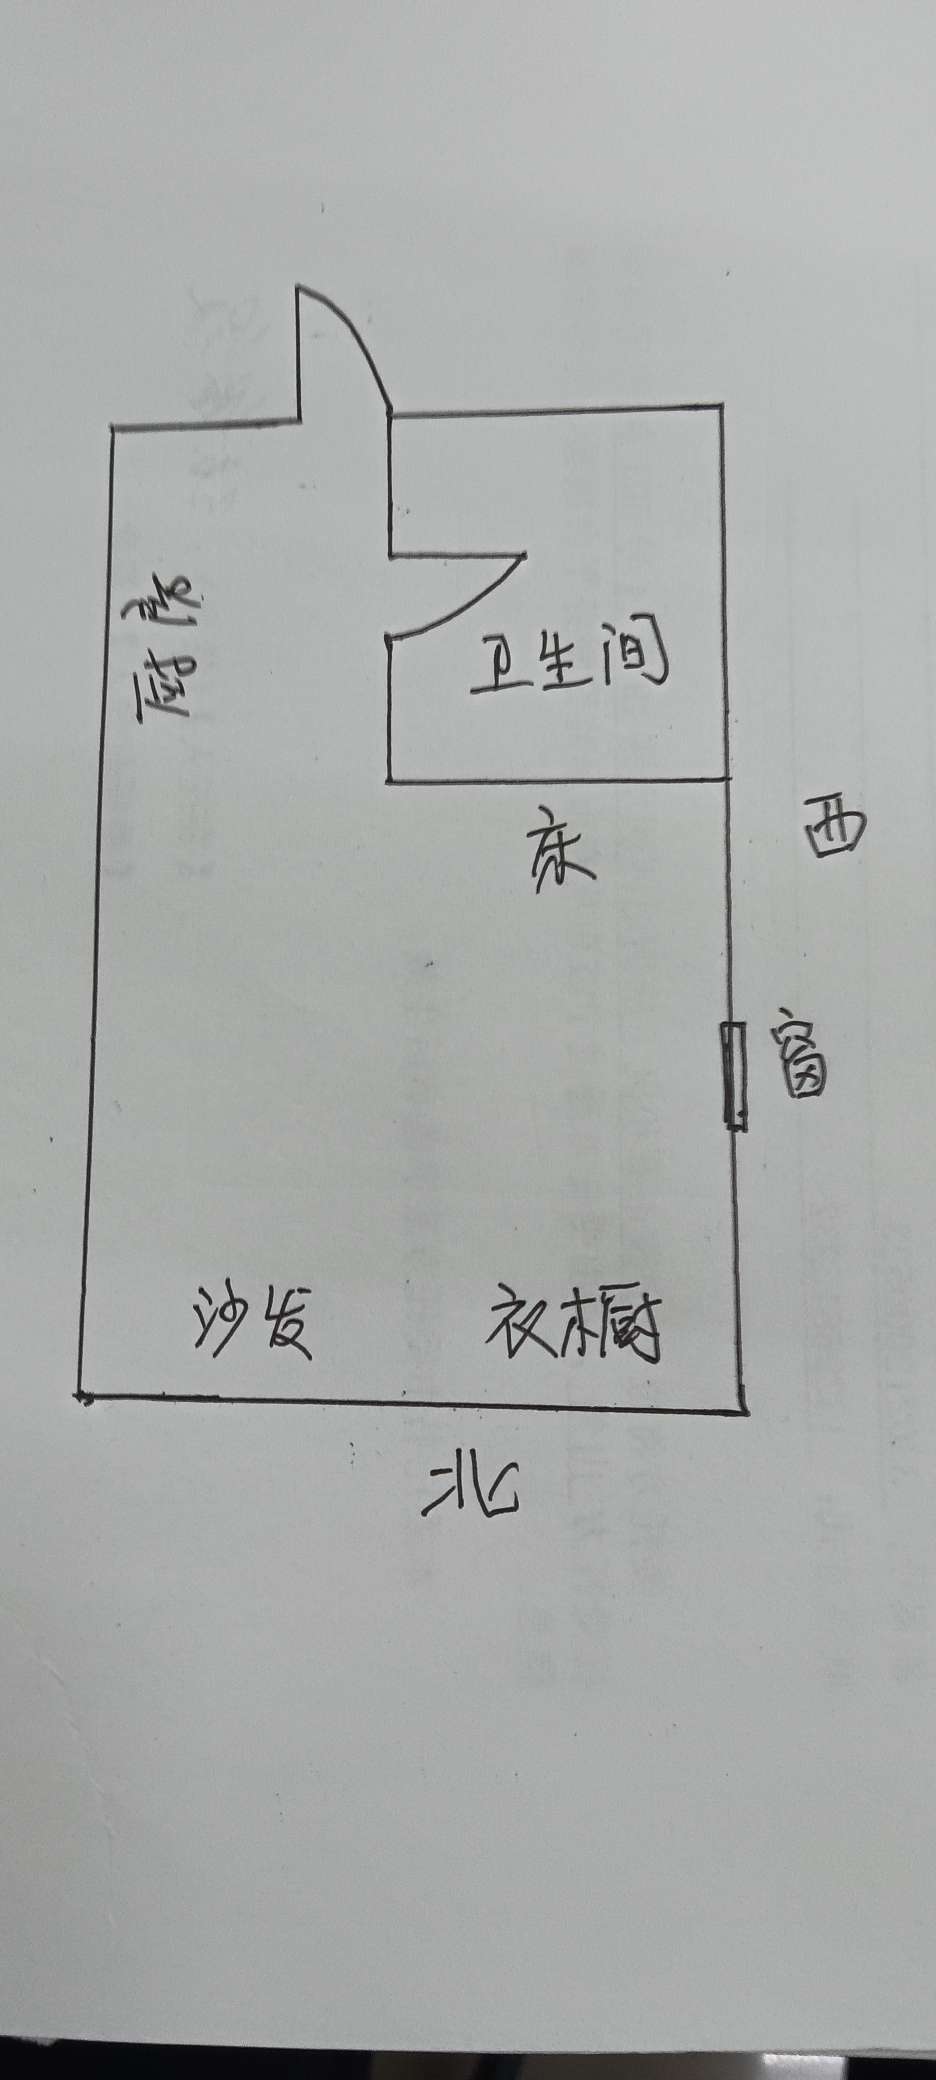 厨房
卫生间
床
西
窗
沙发
衣橱
北